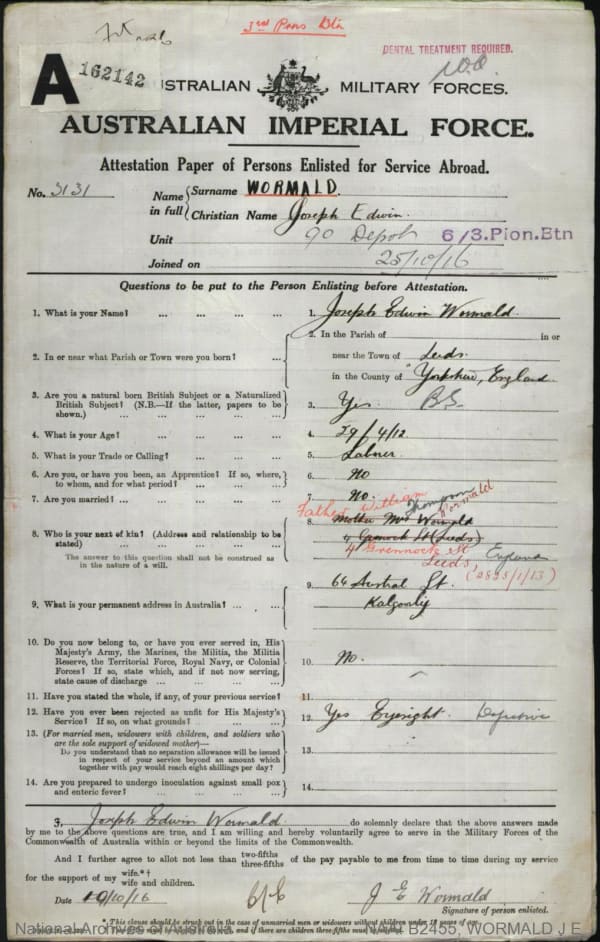 3rd Pnrs Btn
DENTAL TREATMENT REQUIRED.
A 162142
AUSTRALIAN MILITARY FORCES.
AUSTRALIAN IMPERIAL FORCE.
Attestation Paper of Persons Enlisted for Service Abroad.
No. 3131
Name in full { Surname WORMALD.
Christian Name Joseph Edwin.
Unit 90 Depot 6/3.Pion.Btn
Joined on 25/10/16
Questions to be put to the Person Enlisting before Attestation.
1. What is your Name? ... ... ... ... 1. Joseph Edwin Wormald.
2. In or near what Parish or Town were you born? ... 2. In the Parish of in or
near the Town of Leeds.
in the County of Yorkshire, England
3. Are you a natural born British Subject or a Naturalized
British Subject? (N.B.—If the latter, papers to be
shown.) ... ... ... ... 3. Yes. B.S.
4. What is your Age? ... ... ... ... 4. 29/4/12.
5. What is your Trade or Calling? ... ... ... 5. Labourer.
6. Are you, or have you been, an Apprentice? If so, where,
to whom, and for what period? ... ... ... 6. No
7. Are you married? ... ... ... ... ... 7. No.
Father William Thompson Wormald
8. Who is your next of kin? (Address and relationship to be
stated) ... ... ... ... 8. Mother Mrs Wormald
The answer to this question shall not be construed as
in the nature of a will.
4 Grennock St
Leeds, England
(2828/1/13)
9. What is your permanent address in Australia? ... ... 9. 64 Austral St.
Kalgoorlie
10. Do you now belong to, or have you ever served in, His
Majesty's Army, the Marines, the Militia, the Militia
Reserve, the Territorial Force, Royal Navy, or Colonial
Forces? If so, state which, and if not now serving,
state cause of discharge ... ... ... 10. No.
11. Have you stated the whole, if any, of your previous service? 11.
12. Have you ever been rejected as unfit for His Majesty's
Service? If so, on what grounds? ... ... ... 12. Yes Eyesight. Defective
13. (For married men, widowers with children, and soldiers who
are the sole support of widowed mother)—
Do you understand that no separation allowance will be issued
in respect of your service beyond an amount which
together with pay would reach eight shillings per day? 13.
14. Are you prepared to undergo inoculation against small pox
and enteric fever? ... ... ... ... 14.
I, Joseph Edwin Wormald. do solemnly declare that the above answers made
by me to the above questions are true, and I am willing and hereby voluntarily agree to serve in the Military Forces of the
Commonwealth of Australia within or beyond the limits of the Commonwealth.
And I further agree to allot not less than two-fifths three-fifths of the pay payable to me from time to time during my service
for the support of my wife.*† wife and children.
Date 10/10/16 J E Wormald
Signature of person enlisted.
* This clause should be struck out in the case of unmarried men or widowers without children under 18 years of age.
National Archives of Australia NAA: B2455, WORMALD J E